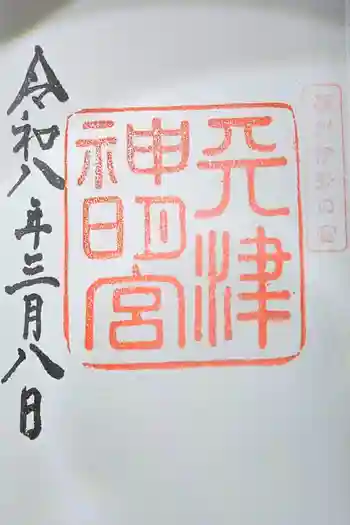 天津
神明宮
令和八年三月八日